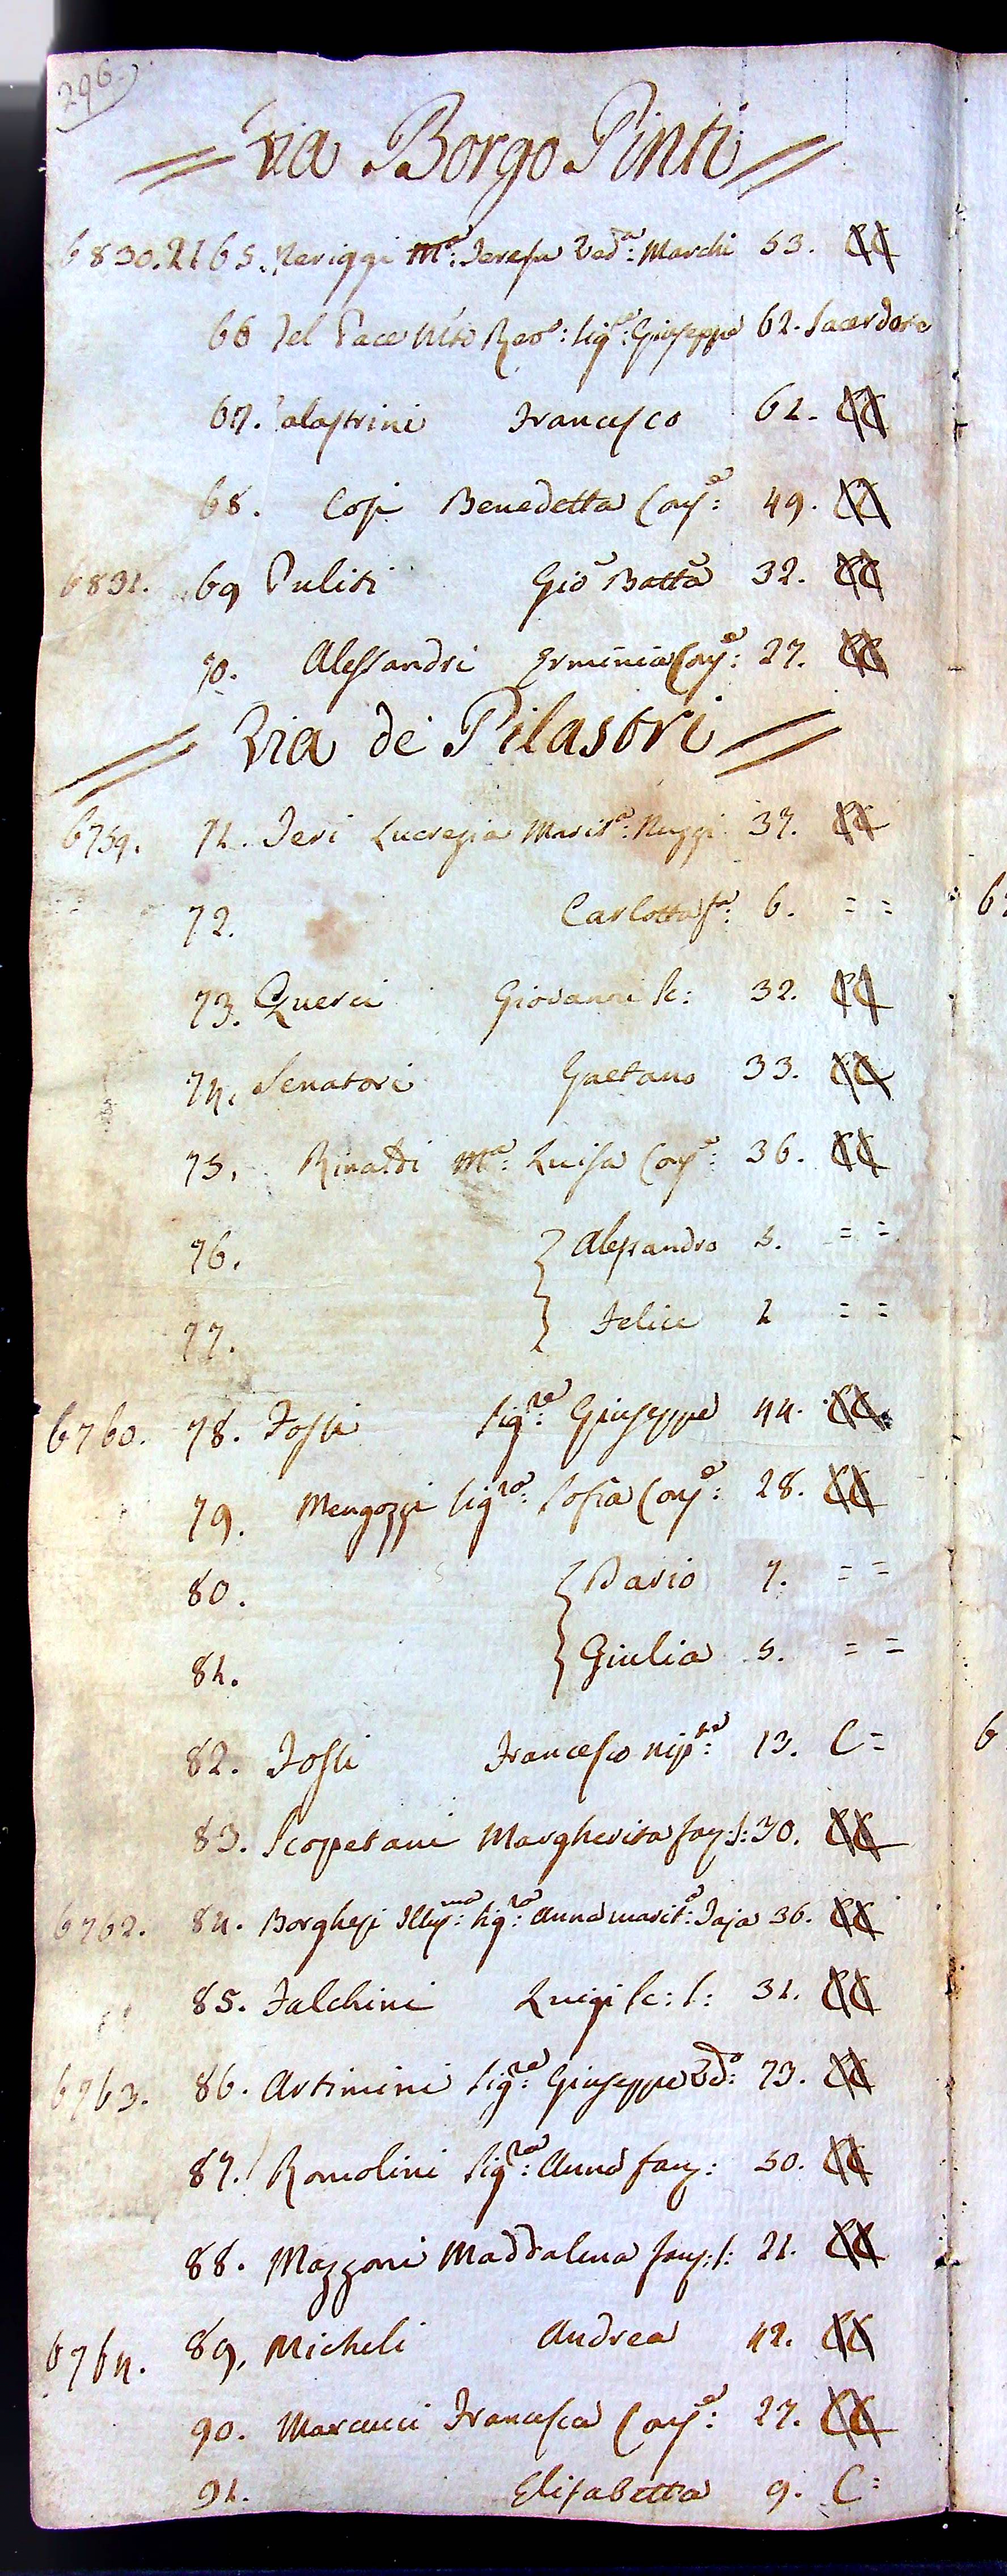 296.
= Via Borgo Pinti =
6830. 2165. Neriggi Mª: Teresa Vedª: Marchi 53. CC
66 Del Pace Mto Revº: Sigre: Giuseppe 62. Sacerdote
67. Palastrini Francesco 61. CC
68. Cosi Benedetta Conse: 49. CC
6831. 69 Puliti Gio Batta 32. CC
70. Alessandri Erminia Conse: 27. CC
= Via de Pilastri =
6759. 71. Neri Lucrezia Maritª: Nuzzi 37. CC
72. Carlotta fª: 6. = =
73. Querci Giovanni Sc: 32. CC
74. Senatori Gaetano 33. CC
75. Rinaldi Mª: Luisa Conse: 36. CC
76. { Alessandro 5. = =
77. { Felice 1 = =
6760. 78. Fossi Sigre: Giuseppe 44. CC
79. Mengozzi Sigra: Sofia Conse: 28. CC
80. { Dario 7. = =
81. { Giulia 5. = =
82. Fossi Francesco nipte: 13. C =
83. Scopetani Margherita fan: S: 30. CC
6762. 84. Borghesi Illma: Sigra: Anna maritª: Jaja 36. CC
85. Falchini Luigi Sc: S: 31. CC
6763. 86. Artimini Sigre: Giuseppe Vdº: 73. CC
87. Romolini Sigra: Anna fan: 50. CC
88. Mazzoni Maddalena fan: S: 21. CC
6764. 89, Micheli Andrea 42. CC
90. Marcucci Francesca Conse: 27. CC
91. Elisabetta 9. C =